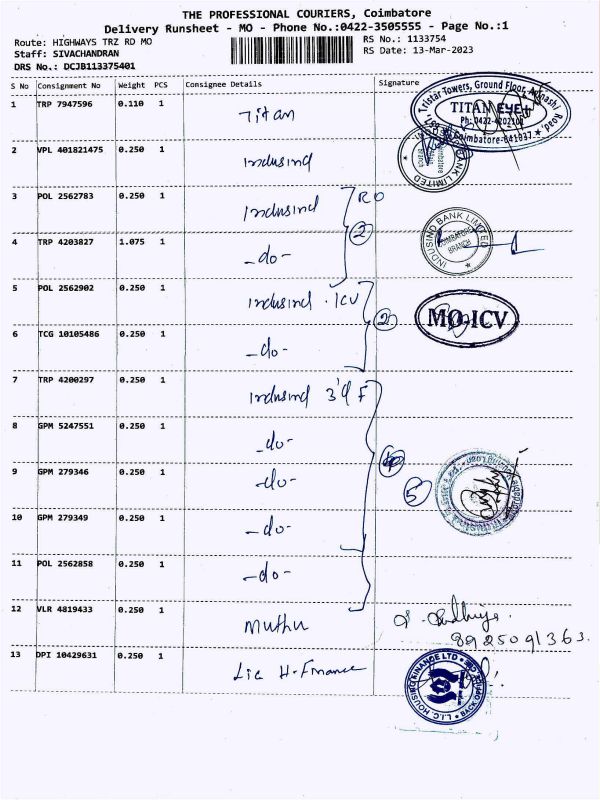 THE PROFESSIONAL COURIERS, Coimbatore
Delivery Runsheet - MO - Phone No.:0422-3505555 - Page No.:1
Route: HIGHWAYS TRZ RD MO
RS No.: 1133754
Staff: SIVACHANDRAN
RS Date: 13-Mar-2023
DRS No.: DCJB113375401
S No Consignment No Weight PCS Consignee Details Signature
1 TRP 7947596 0.110 1 Titan
Tristar Towers, Ground Floor, Avinashi Road,
TITAN EYE+
Ph: 0422-4202104
Coimbatore-641037
2 VPL 401821475 0.250 1 Indusind
BANK LIMITED
3 POL 2562783 0.250 1 Indusind RO
2
INDUSIND BANK LIMITED
COIMBATORE
BRANCH
4 TRP 4203827 1.075 1 -do-
5 POL 2562902 0.250 1 Indusind . ICV
2
MO-ICV
6 TCG 10105486 0.250 1 -do-
7 TRP 4200297 0.250 1 Indusind 3rd F
8 GPM 5247551 0.250 1 -do-
9 GPM 279346 0.250 1 -do-
5
10 GPM 279349 0.250 1 -do-
11 POL 2562858 0.250 1 -do-
12 VLR 4819433 0.250 1 Muthu
8925091363.
13 DPI 10429631 0.250 1 Lic H.Finance
L.I.C. HOUSING FINANCE LTD
BACK OFFICE